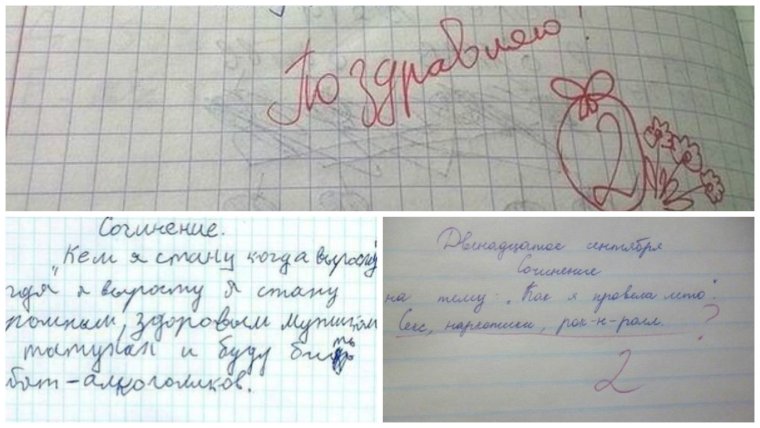 Поздравляю!
2
Сочинение.
"Кем я стану когда вырасту"
гда я вырасту я стану
ромным, здоровым мужиком
татухах и буду бить
бят-алкоголиков.
Двенадцатое сентября
Сочинение
на тему: „Как я провела лето".
Секс, наркотики, рок-н-ролл. ?
2